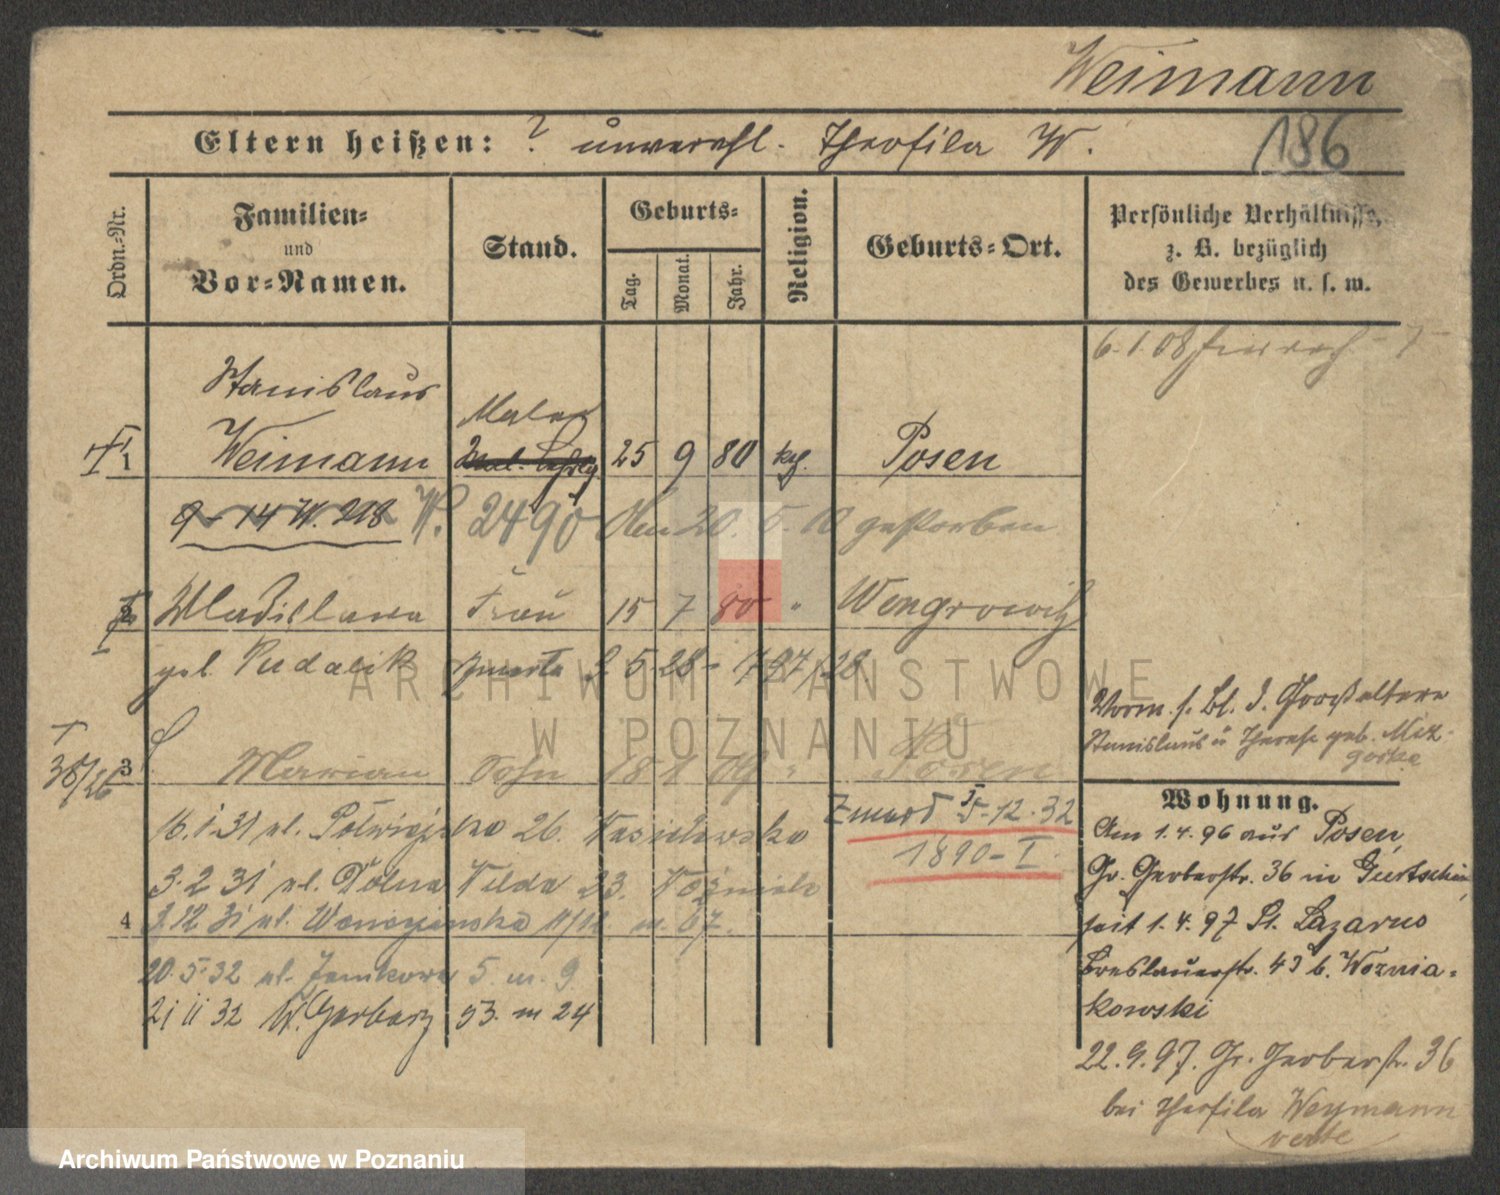 Weimann
Eltern heißen: ? unverehl. Theofila W.
186
Ordn.-Nr.
Familien-
und
Vor-Namen.
Stand.
Geburts-
Tag.
Monat.
Jahr.
Religion.
Geburts-Ort.
Persönliche Verhältnisse,
z. B. bezüglich
des Gewerbes u. s. w.
6. 1. 08
Stanislaus
Maler
1 Weimann 25 9 80 kath. Posen
9-14 W. 218 W. 2490 Am 20. 5. 10 gestorben
2 Wladislawa Frau 15 7 80 " Wongrowitz
geb. Pudalik zmarła 2 5 28 - 787/28
Vorm. s. Bl. d. Großeltern
Stanislaus u Therese geb. Miz-
gorska
38/26
3 Marian Sohn 18 1 09 " Posen
Wohnung.
16. 1. 31 ul. Półwiejska 26.
Zmarł 5-12-32
1890-I.
3. 2 31 ul. Dolna Wilda 23. Woźniak
4 3. 12 31 ul. 11/12 m. 67.
20. 5. 32 ul. Zamkowa 5. m. 9
21 11 32 W. Garbary 53. m 24
Am 1. 4. 96 aus Posen,
Gr. Gerberstr. 36 in Gurtschin,
seit 1. 4. 97 St. Lazarus
Breslauerstr. 43 b. Woznia-
kowski
22. 9. 97. Gr. Gerberstr. 36
bei Theofila Weymann
verte
ARCHIWUM PAŃSTWOWE
W POZNANIU
Archiwum Państwowe w Poznaniu